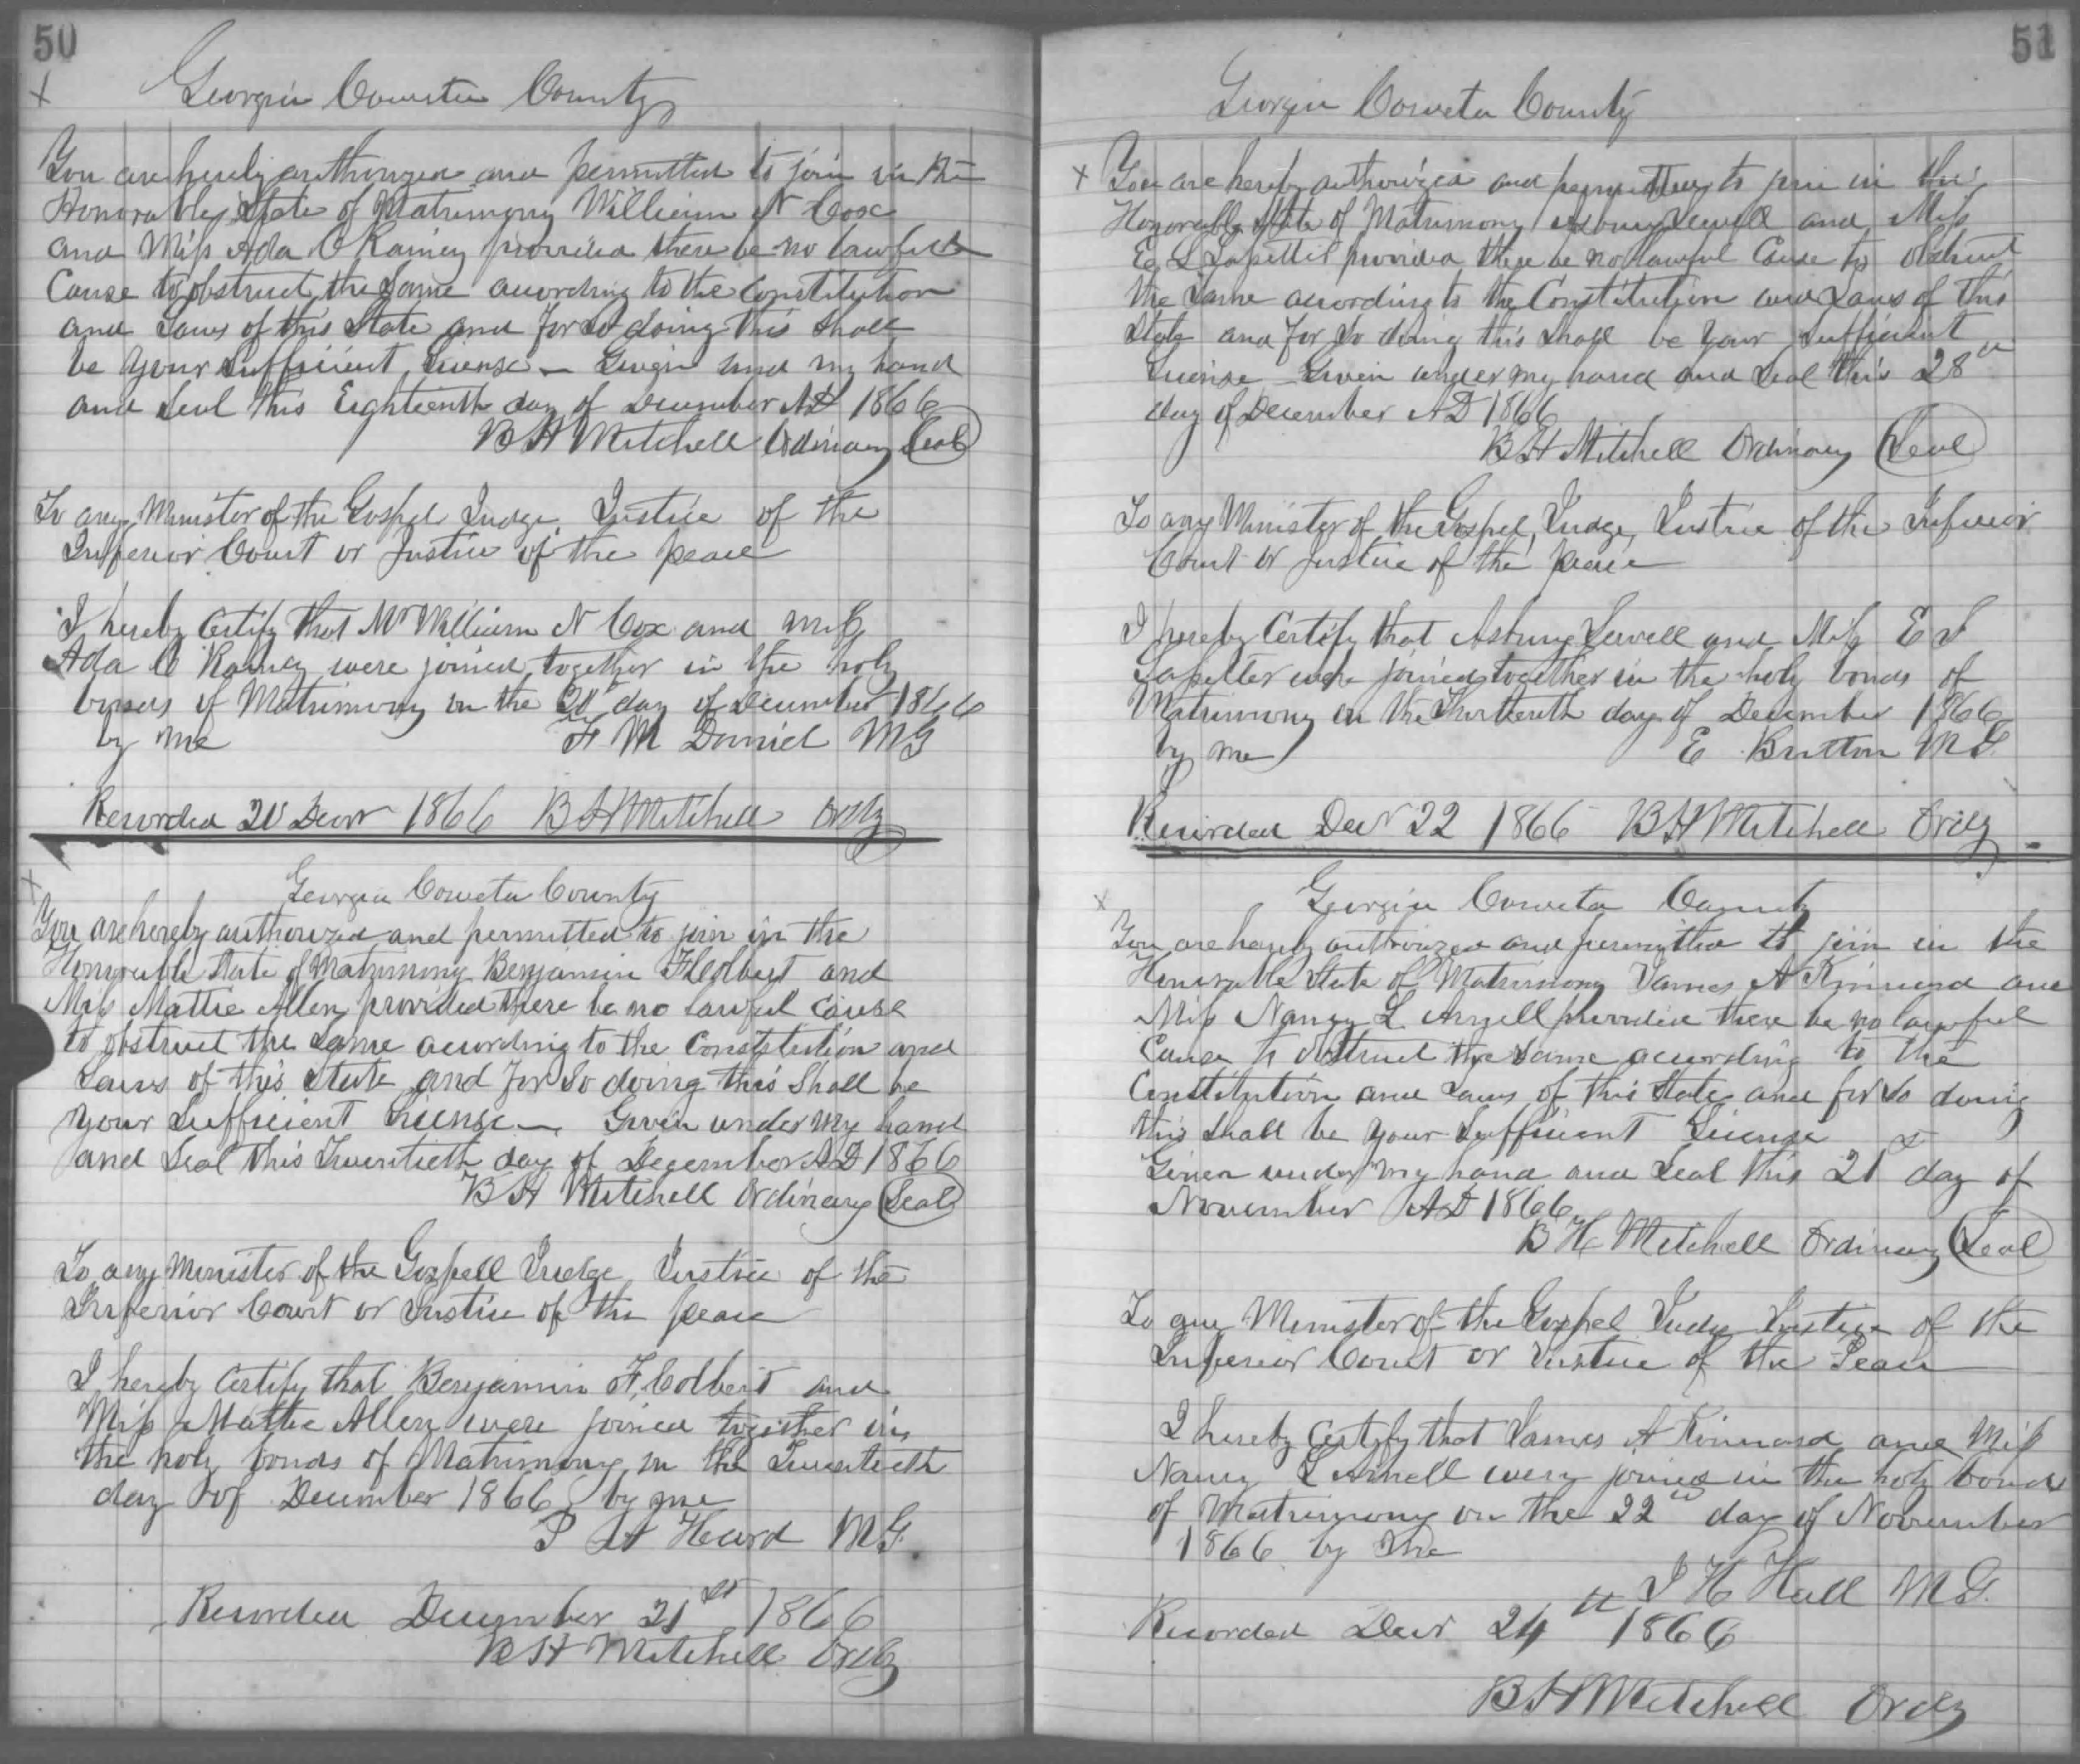 50
x
Georgia Coweta County
You are hereby authorized and permitted to join in the
Honorable State of Matrimony William N Cox
and Miss Ada C Rainey provided there be no lawful
Cause to obstruct the Same according to the Constitution
and Laws of this State and for So doing this Shall
be your Sufficient License — Given und my hand
and Seal this Eighteenth day of December AD 1866
B H Mitchell Ordinary Seal
To any Minister of the Gospel Judge, Justice of the
Inferior Court or Justice of the peace
I hereby Certify that Mr William N Cox and Miss
Ada C Rainey were joined together in the holy
bonds of Matrimony on the 20th day of December 1866
by me F M Daniel MG
Recorded 20 Decr 1866 B H Mitchell Ordy
x
Georgia Coweta County
You are hereby authorized and permitted to join in the
Honorable State of Matrimony Benjamin F Colbert and
Miss Mattie Allen provided there be no lawful Cause
to obstruct the Same according to the Constitution and
Laws of this State and for So doing this Shall be
your Sufficient License — Given under my hand
and Seal this Twentieth day of December AD 1866
B H Mitchell Ordinary Seal
To any Minister of the Gospell Judge Justice of the
Inferior Court or Justice of the peace
I hereby Certify that Benjamin F. Colbert and
Miss Mattie Allen were joined together in
the holy bonds of Matrimony on the Twentieth
day of December 1866 by me
P H Heard MG
Recorded December 21st 1866
B H Mitchell Ordy
51
Georgia Coweta County
x You are hereby authorized and permitted to join in the
Honorable State of Matrimony Asbury Sewell and Miss
E S provided there be no lawful Cause to obstruct
the Same according to the Constitution and Laws of this
State and for So doing this Shall be your Sufficient
License Given under my hand and Seal this 28th
day of December AD 1866
B H Mitchell Ordinary Seal
To any Minister of the Gospel, Judge, Justice of the Inferior
Court or Justice of the peace
I hereby Certify that Asbury Sewell and Miss E S
were joined together in the holy bonds of
Matrimony on the Thirteenth day of December 1866
by me E Britton MG.
Recorded Decr 22 1866 B H Mitchell Ordy
x
Georgia Coweta County
You are hereby authorized and permitted to join in the
Honorable State of Matrimony James A Kinnard and
Miss Nancy L Arnell provided there be no lawful
Cause to obstruct the Same according to the
Constitution and Laws of this State and for So doing
this Shall be your Sufficient License
Given under my hand and Seal this 21st day of
November AD 1866
B H Mitchell Ordinary Seal
To any Minister of the Gospel Judge Justice of the
Inferior Court or Justice of the Peace
I hereby Certify that James A Kinnard and Miss
Nancy L Arnell were joined in the holy bonds
of Matrimony on the 22nd day of November
1866 by Me
J H Hall MG.
Recorded Decr 24th 1866
B H Mitchell Ordy